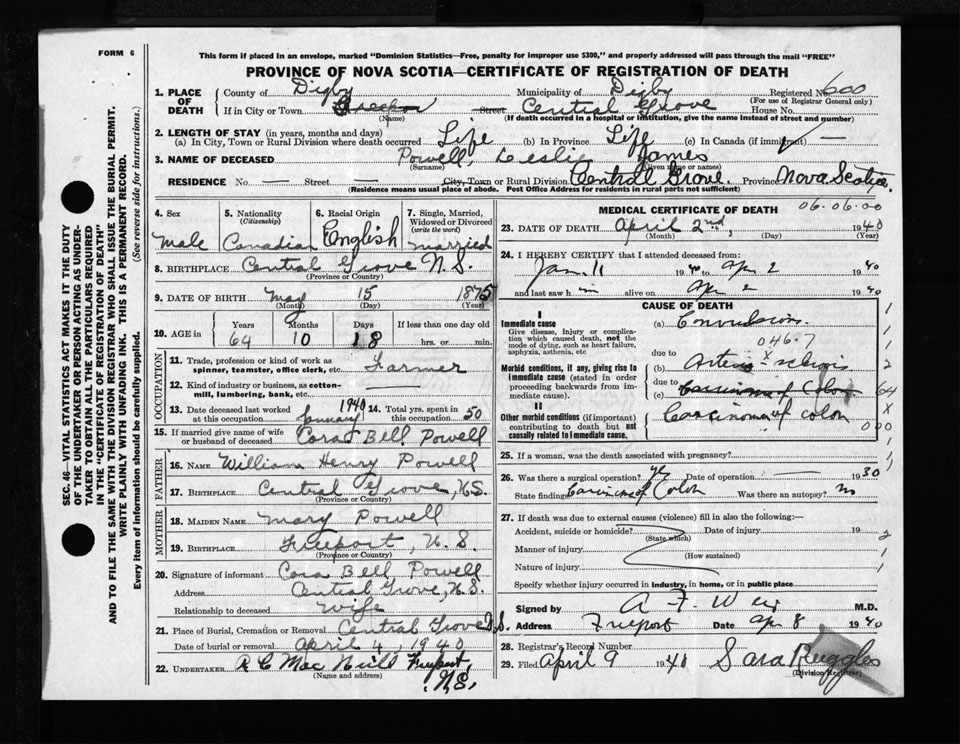 FORM 6
This form if placed in an envelope, marked "Dominion Statistics—Free, penalty for improper use $300," and properly addressed will pass through the mail "FREE"
PROVINCE OF NOVA SCOTIA—CERTIFICATE OF REGISTRATION OF DEATH
1. PLACE OF DEATH County of Digby Municipality of Digby Registered No. 600
(For use of Registrar General only)
If in City or Town Street Central Grove House No.
(Name) (If death occurred in a hospital or institution, give the name instead of street and number)
2. LENGTH OF STAY (in years, months and days)
(a) In City, Town or Rural Division where death occurred Life (b) In Province Life (c) In Canada (if immigrant) —
3. NAME OF DECEASED Powell, Leslie James
(Surname) (Given name or names)
RESIDENCE No. — Street — City, Town or Rural Division Central Grove, Province Nova Scotia.
(Residence means usual place of abode. Post Office Address for residents in rural parts not sufficient)
4. Sex Male
5. Nationality (Citizenship) Canadian
6. Racial Origin English
7. Single, Married, Widowed or Divorced (write the word) Married
8. BIRTHPLACE Central Grove N.S.
(Province or Country)
9. DATE OF BIRTH May 15 1875
(Month) (Day) (Year)
10. AGE in Years Months Days If less than one day old
64 10 18 hrs. or min.
OCCUPATION
11. Trade, profession or kind of work as spinner, teamster, office clerk, etc. Farmer
12. Kind of industry or business, as cotton-mill, lumbering, bank, etc. —
13. Date deceased last worked at this occupation January 1940
14. Total yrs. spent in this occupation 50
15. If married give name of wife or husband of deceased Cora Bell Powell
FATHER
16. NAME William Henry Powell
17. BIRTHPLACE Central Grove, N.S.
MOTHER
18. MAIDEN NAME Mary Powell
19. BIRTHPLACE Freeport, N.S.
(Province or Country)
20. Signature of informant Cora Bell Powell
Address Central Grove, N.S.
Relationship to deceased Wife
21. Place of Burial, Cremation or Removal Central Grove N.S.
Date of burial or removal April 4, 1940
22. UNDERTAKER R C Mac Neill Freeport, N.S.
(Name and address)
MEDICAL CERTIFICATE OF DEATH 06.06.00
23. DATE OF DEATH April 2nd, 1940
(Month) (Day) (Year)
24. I HEREBY CERTIFY that I attended deceased from:
Jan. 11 1940 to Apr 2 1940
and last saw him alive on Apr 2 1940
CAUSE OF DEATH
I
Immediate cause
Give disease, injury or complication which caused death, not the mode of dying, such as heart failure, asphyxia, asthenia, etc
(a) Convulsions
046.7
due to
Morbid conditions, if any, giving rise to immediate cause (stated in order proceeding backwards from immediate cause).
(b) Arterio sclerosis
due to
(c) Carcinoma of Colon
II
Other morbid conditions (if important) contributing to death but not causally related to immediate cause.
Carcinoma of colon
25. If a woman, was the death associated with pregnancy?
26. Was there a surgical operation? yes Date of operation — 1930
State findings Carcinoma of Colon Was there an autopsy? no
27. If death was due to external causes (violence) fill in also the following:—
Accident, suicide or homicide? Date of injury 19
(State which)
Manner of injury
(How sustained)
Nature of injury
Specify whether injury occurred in industry, in home, or in public place
Signed by A F Weir M.D.
Address Freeport Date Apr 8 1940
28. Registrar's Record Number
29. Filed April 9 1940 Sara Ruggles
(Division Registrar)
SEC. 46—VITAL STATISTICS ACT MAKES IT THE DUTY OF THE UNDERTAKER OR PERSON ACTING AS UNDERTAKER TO OBTAIN ALL THE PARTICULARS REQUIRED IN THE "CERTIFICATE OF REGISTRATION OF DEATH" AND TO FILE THE SAME WITH THE DIVISION REGISTRAR WHO SHALL ISSUE THE BURIAL PERMIT.
WRITE PLAINLY WITH UNFADING INK. THIS IS A PERMANENT RECORD.
Every item of information should be carefully supplied. (See reverse side for instructions.)